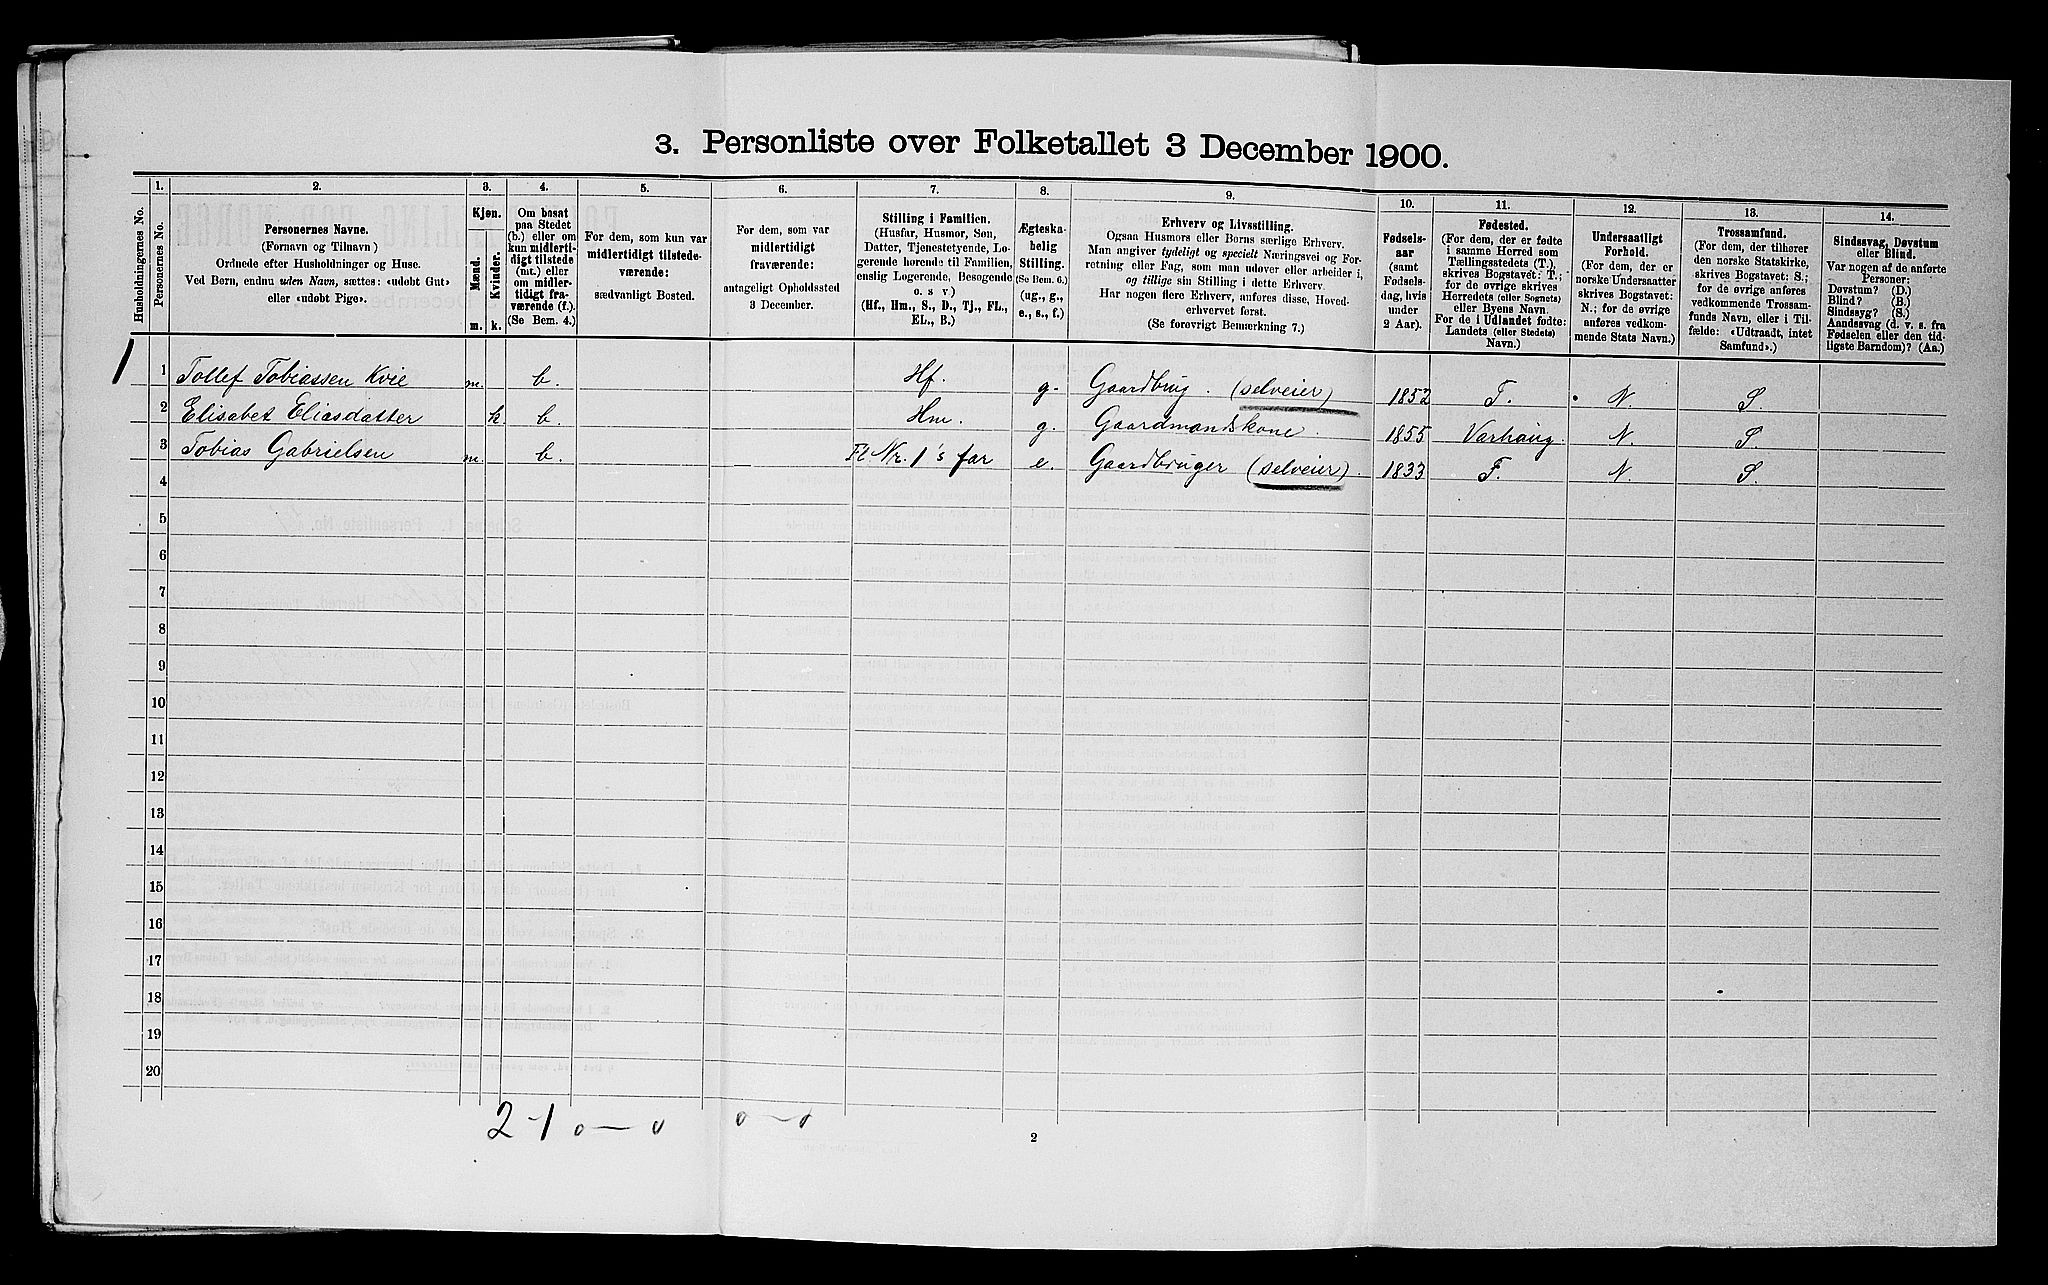 3. Personliste over Folketallet 3 December 1900.
Husholdningernes No.
1.
Personernes No.
2.
Personernes Navne.
(Fornavn og Tilnavn)
Ordnede efter Husholdninger og Huse.
Ved Børn, endnu uden Navn, sættes: «udøbt Gut»
eller «udøbt Pige».
3.
Kjøn.
Mænd.
Kvinder.
m. k.
4.
Om bosat
paa Stedet
(b.) eller om
kun midlerti-
digt tilstede
(mt.) eller
om midler-
tidigt fra-
værende (f.).
(Se Bem. 4.)
5.
For dem, som kun var
midlertidigt tilstede-
værende:
sædvanligt Bosted.
6.
For dem, som var
midlertidigt
fraværende:
antageligt Opholdssted
3 December.
7.
Stilling i Familien.
(Husfar, Husmor, Søn,
Datter, Tjenestetyende, Lo-
gerende hørende til Familien,
enslig Logerende, Besøgende
o. s v)
(Hf., Hm., S., D., Tj., FL.,
EL., B.)
8.
Ægteska-
belig
Stilling.
(Se Bem. 6.)
(ug., g.,
e., s., f.)
9.
Erhverv og Livsstilling.
Ogsaa Husmors eller Børns særlige Erhverv.
Man angiver tydeligt og specielt Næringsvei og For-
retning eller Fag, som man udøver eller arbeider i,
og tillige sin Stilling i dette Erhverv.
Har nogen flere Erhverv, anføres disse, Hoved-
erhvervet først.
(Se forøvrigt Bemærkning 7.)
10.
Fødsels-
aar
(samt
Fødsels-
dag, hvis
under
2 Aar).
11.
Fødested.
(For dem, der er fødte
i samme Herred som
Tællingsstedets (T.),
skrives Bogstavet: T.;
for de øvrige skrives
Herredets (eller Sognets)
eller Byens Navn.
For de i Udlandet fødte:
Landets (eller Stedets)
Navn.)
12.
Undersaatligt
Forhold.
(For dem, der er
norske Undersaatter
skrives Bogstavet:
N.; for de øvrige
anføres vedkom-
mende Stats Navn.)
13.
Trossamfund.
(For dem, der tilhører
den norske Statskirke,
skrives Bogstavet: S.;
for de øvrige anføres
vedkommende Trossam-
funds Navn, eller i Til-
fælde: «Udtraadt, intet
Samfund».)
14.
Sindssvag, Døvstum
eller Blind.
Var nogen af de anførte
Personer:
Døvstum? (D.)
Blind? (B.)
Sindssyg? (S.)
Aandssvag (d. v. s. fra
Fødselen eller den tid-
ligste Barndom)? (Aa.)
1 1 Tollef Tobiassen Kvie m. b. Hf. g. Gaardbrug. (selveier) 1852 T. N. S.
2 Elisabet Eliasdatter k. b. Hm. g. Gaardmandskone. 1855 Varhaug. N. S
3 Tobias Gabrielsen m. b. Fl Nr. 1's far e. Gaardbruger (selveier). 1833 T. N. S.
4
5
6
7
8
9
10
11
12
13
14
15
16
17
18
19
20
2-1 0-0 0-0
2